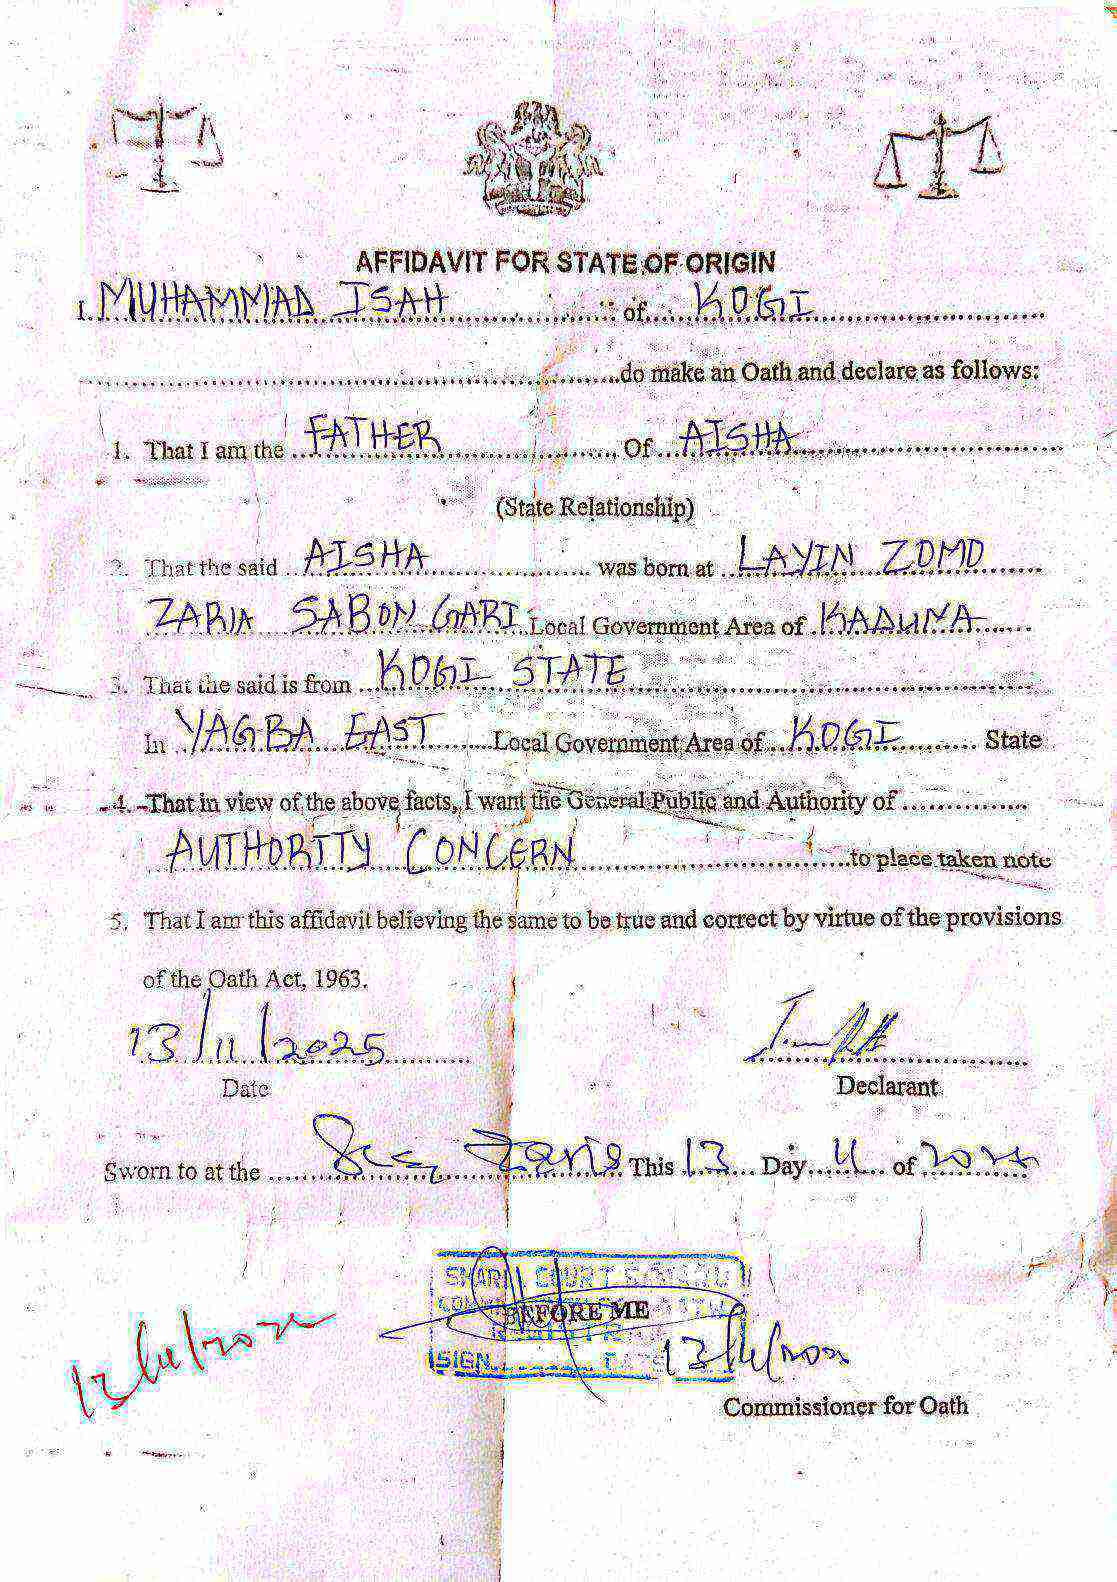 AFFIDAVIT FOR STATE OF ORIGIN
I. MUHAMMAD ISAH of KOGI
do make an Oath and declare as follows:
1. That I am the FATHER Of AISHA
(State Relationship)
2. That the said AISHA was born at LAYIN ZOMO
ZARIA SABON GARI Local Government Area of KADUNA
3. That the said is from KOGI STATE
In YAGBA EAST Local Government Area of KOGI State
4. That in view of the above facts, I want the General Public and Authority of
AUTHORITY CONCERN to place taken note
5. That I am this affidavit believing the same to be true and correct by virtue of the provisions
of the Oath Act, 1963.
13/11/2025
Date
Declarant
Sworn to at the This 13 Day 11 of
COURT
BEFORE ME
SIGN
Commissioner for Oath